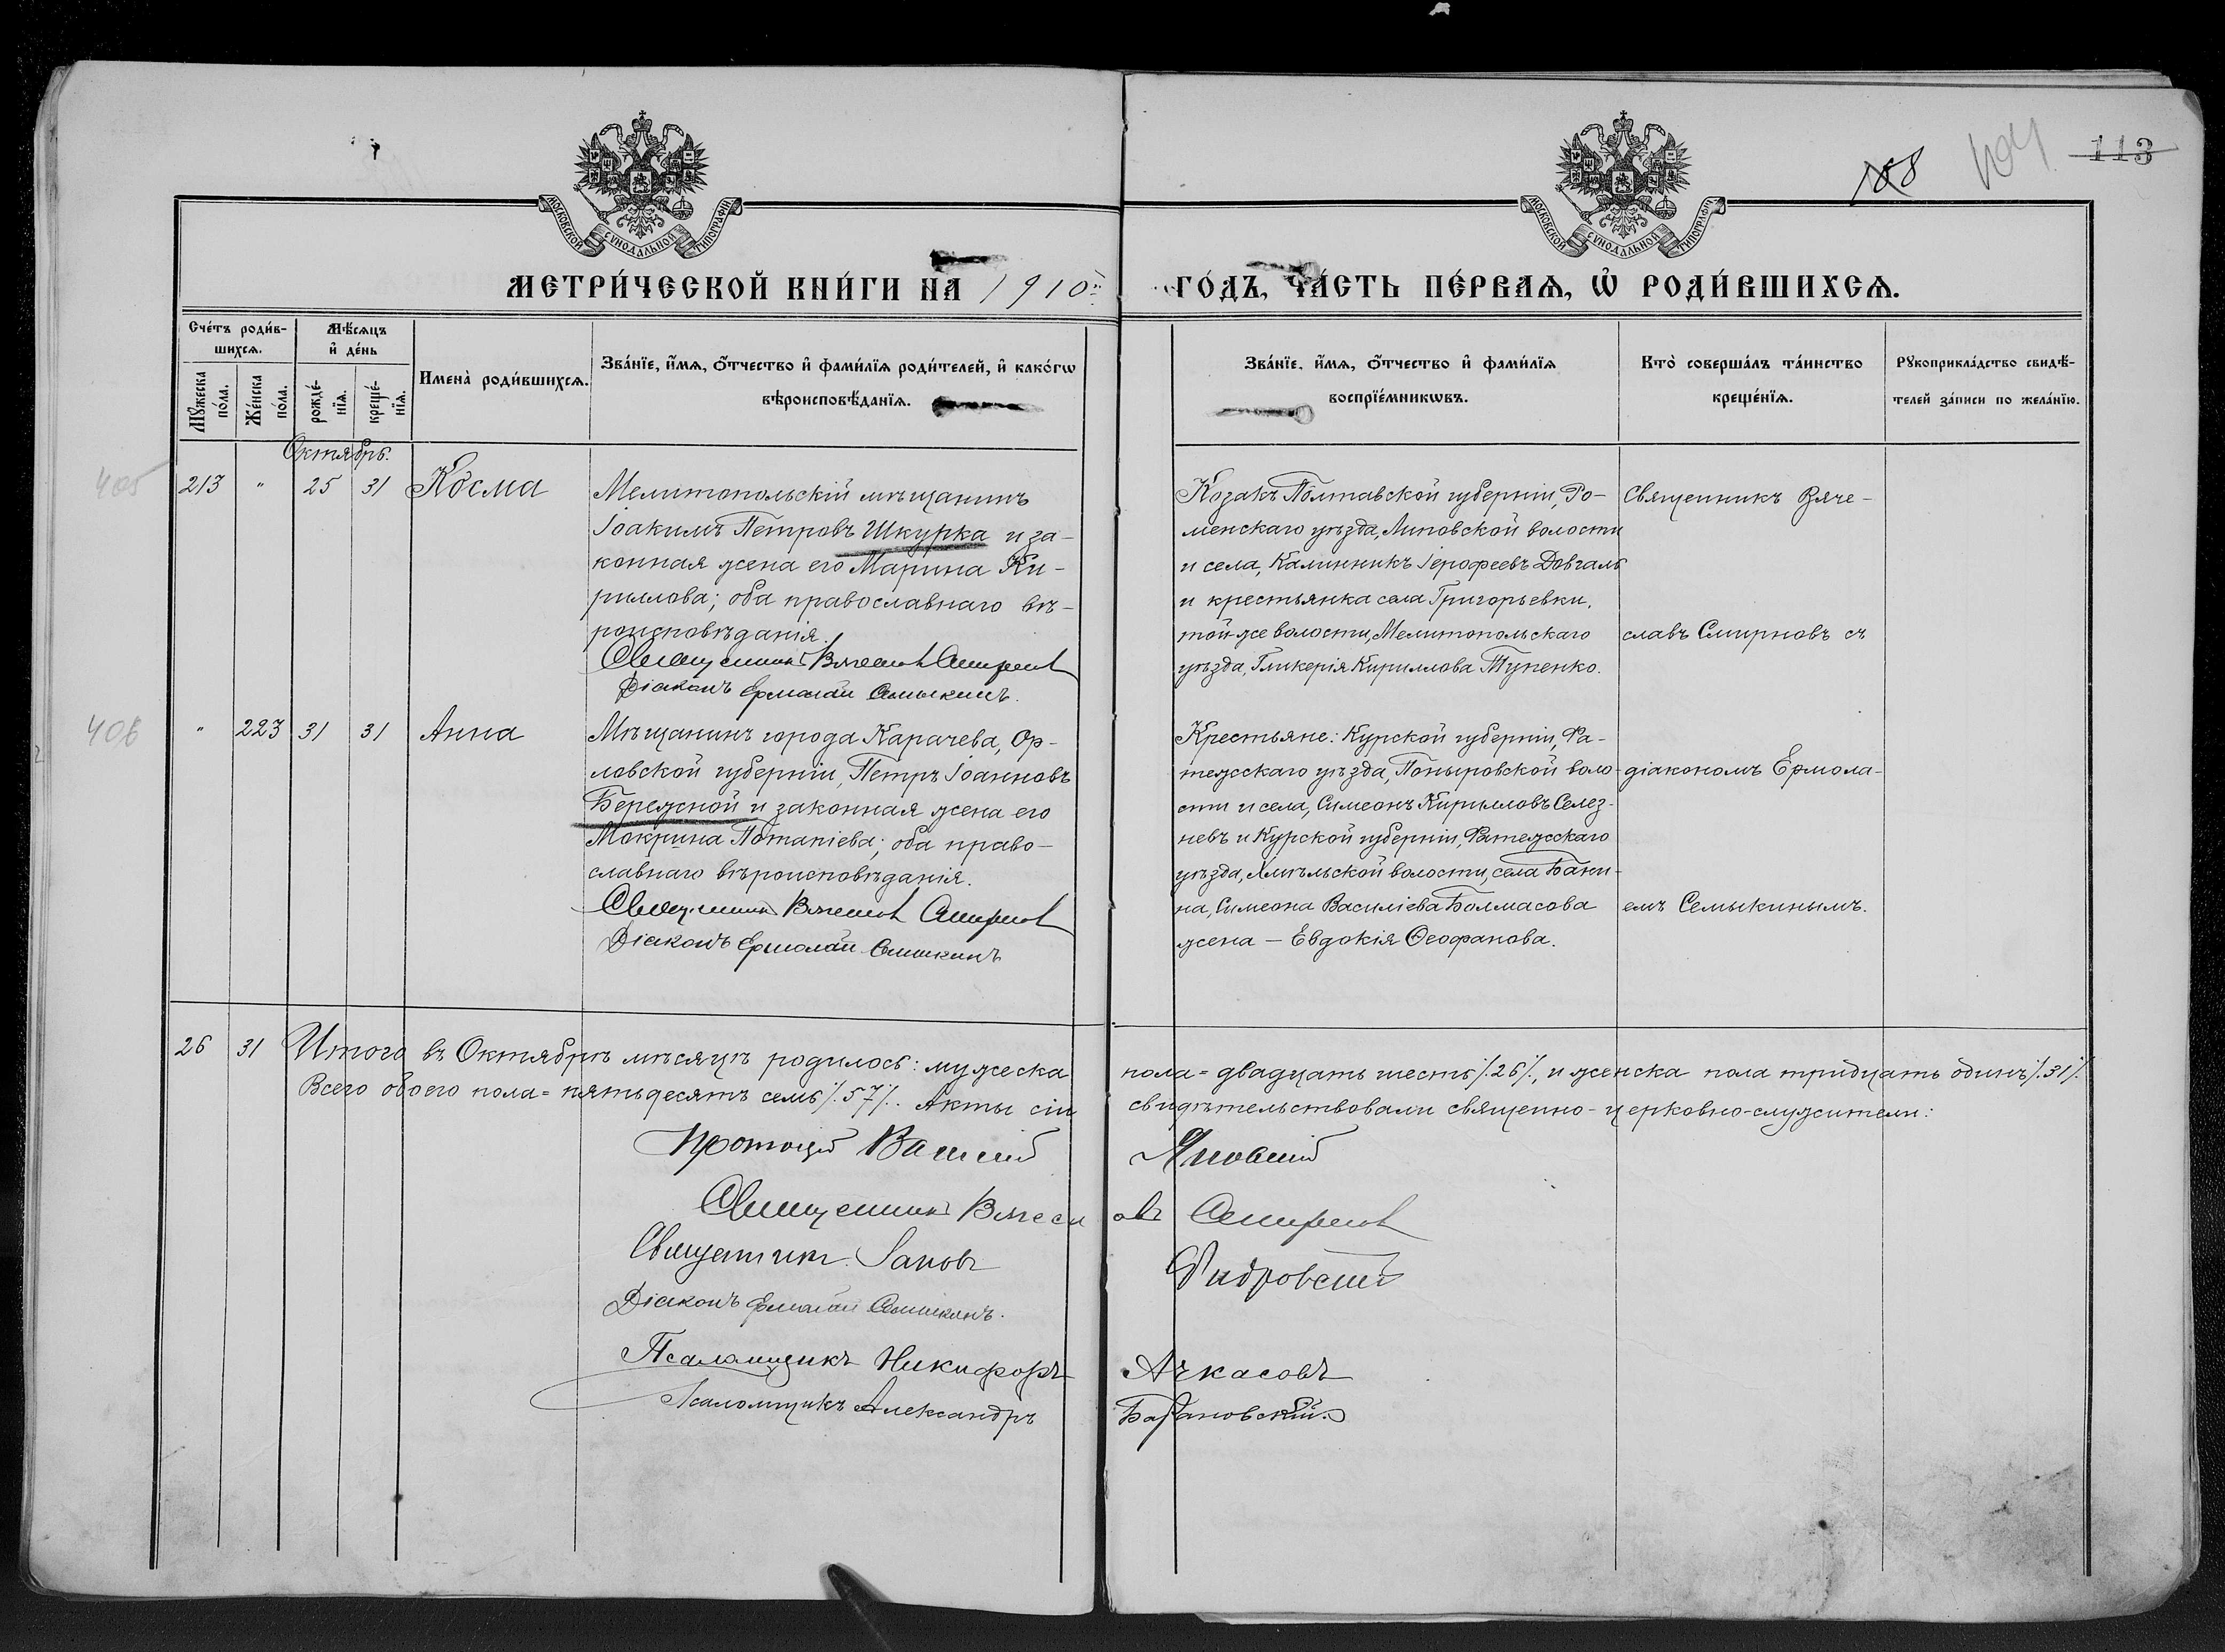 108
104
113
МОСКОВСКОЙ СѴНОДАЛЬНОЙ ТИПОГРАФІИ
МОСКОВСКОЙ СѴНОДАЛЬНОЙ ТИПОГРАФІИ
МЕТРИ́ЧЕСКОЙ КНИ́ГИ НА 1910й
ГО́ДЪ, ЧА́СТЬ ПЕ́РВАѦ, Ѡ РОДИ́ВШИХСѦ.
Сче́тъ роди́в-
шихсѧ.
Мѣ́сѧцъ
и҆ де́нь
Мꙋжеска
по́ла.
Же́нска
по́ла.
рожде́-
нїѧ.
креще́-
нїѧ.
Имена̀ роди́вшихсѧ.
Зва́нїе, и҆́мѧ, ѻ҆́тчество и҆ фами́лїѧ роди́телей, и҆ како́гѡ
вѣроисповѣ́данїѧ.
Зва́нїе, и҆́мѧ, ѻ҆́тчество и҆ фами́лїѧ
воспрїе́мникѡвъ.
Кто̀ соверша́лъ та́инство
креще́нїѧ.
Рꙋкоприкла́дство свидѣ́-
телей за́писи по жела́нїю.
Октябрь.
405
213 " 25 31 Косма
Мелитопольскій мѣщанинъ
Іоакимъ Петровъ Шкурка и за-
конная жена его Марина Ки-
риллова; оба православнаго вѣ-
роисповѣданія.
Священникъ Вячеславъ Смирновъ
Діаконъ Ермолай Семыкинъ.
Козакъ Полтавской губерніи, Ро-
менскаго уѣзда, Липовской волости
и села, Калинникъ Іерофеевъ Довгаль
и крестьянка села Григорьевки,
той же волости, Мелитопольскаго
уѣзда, Гликерія Кириллова Тупенко.
Священникъ Вяче-
славъ Смирновъ съ
406
" 223 31 31 Анна
Мѣщанинъ города Карачева, Ор-
ловской губерніи, Петръ Іоанновъ
Бережной и законная жена его
Мокрина Потапіева; оба право-
славнаго вѣроисповѣданія.
Священникъ Вячеславъ Смирновъ
Діаконъ Ермолай Семыкинъ
Крестьяне: Курской губерніи, Фа-
тежскаго уѣзда, Поныровской воло-
сти и села, Симеонъ Кирилловъ Селез-
невъ и Курской губерніи, Фатежскаго
уѣзда, Хмѣльской волости, села Баки-
на, Симеона Василіева Болмасова
жена — Евдокія Ѳеофанова.
діакономъ Ермола-
емъ Семыкинымъ.
26 31 Итого въ Октябрѣ мѣсяцѣ родилось: мужеска пола = двадцать шесть /.26/., и женска пола тридцать одинъ /.31/.
Всего обоего пола = пятьдесятъ семь /.57/. Акты сіи свидѣтельствовали священно-церковно-служители:
Протоіерей Василій Яновскій
Священникъ Вячеславъ Смирновъ
Священникъ Іаковъ
Діаконъ Ермолай Семыкинъ.
Псаломщикъ Никифоръ Ачкасовъ
Псаломщикъ Александръ Барановскій.